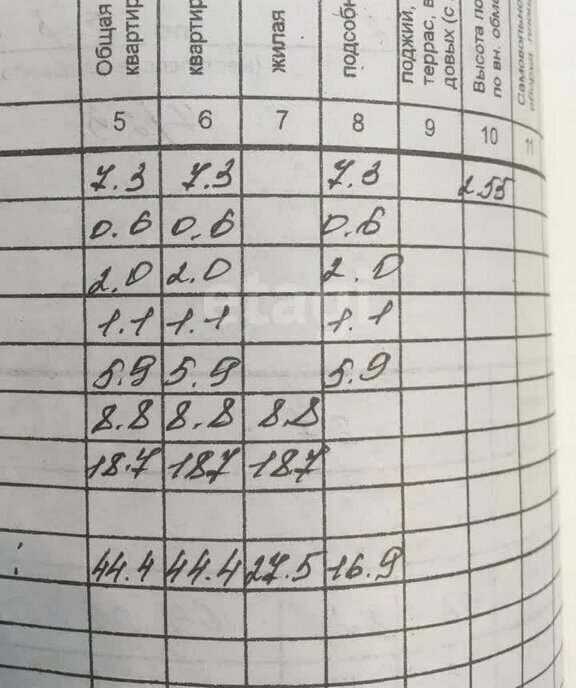 Общая квартир
квартир
жилая
подсобн
террас, в
довых (с
Высота по
по вн. обме
5 6 7 8 9 10 11
7.3 7.3 7.3 2.55
0.6 0.6 0.6
2.0 2.0 2.0
1.1 1.1 1.1
5.9 5.9 5.9
8.8 8.8 8.8
18.7 18.7 18.7
: 44.4 44.4 27.5 16.9
etagi